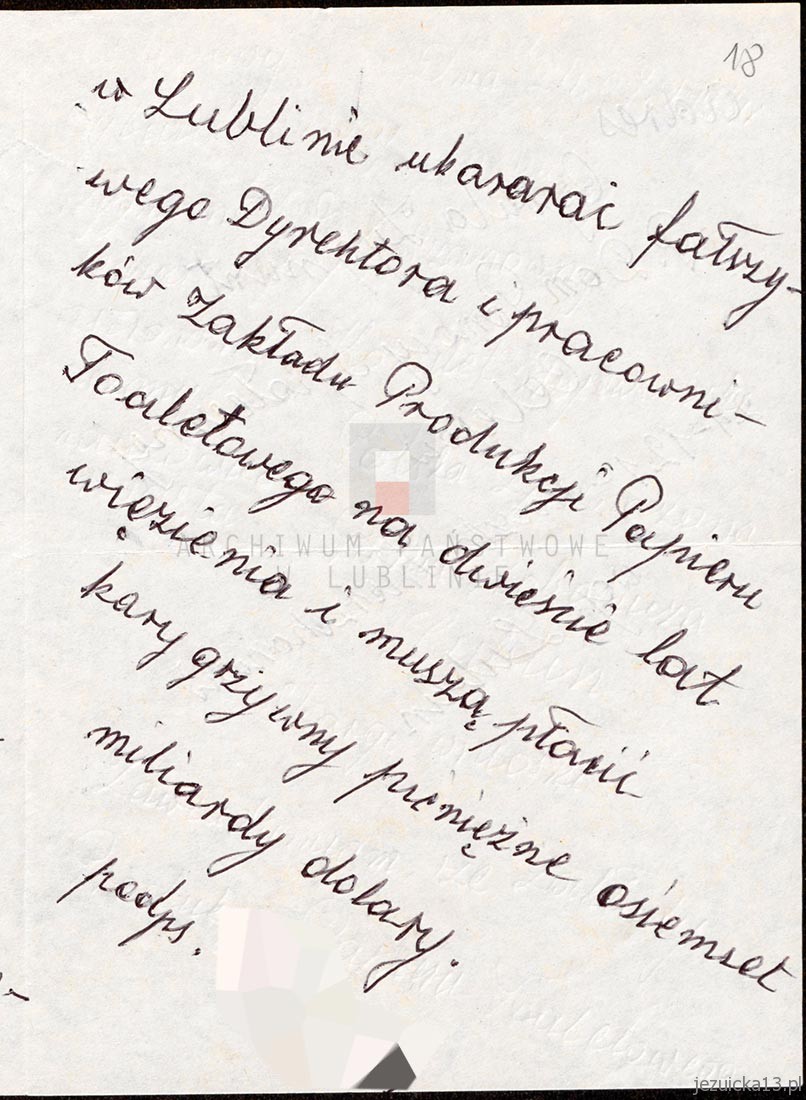 18
w Lublinie ukararać fałszy-
wego Dyrektora i pracowni-
ków Zakładu Produkcji Papieru
Toaletowego na dwieście lat
więzienia i muszą płacić
kary grzywny pieniężne ośiemset
miliardy dolary.
podps.
ARCHIWUM PAŃSTWOWE
W LUBLINIE
jezuicka13.pl